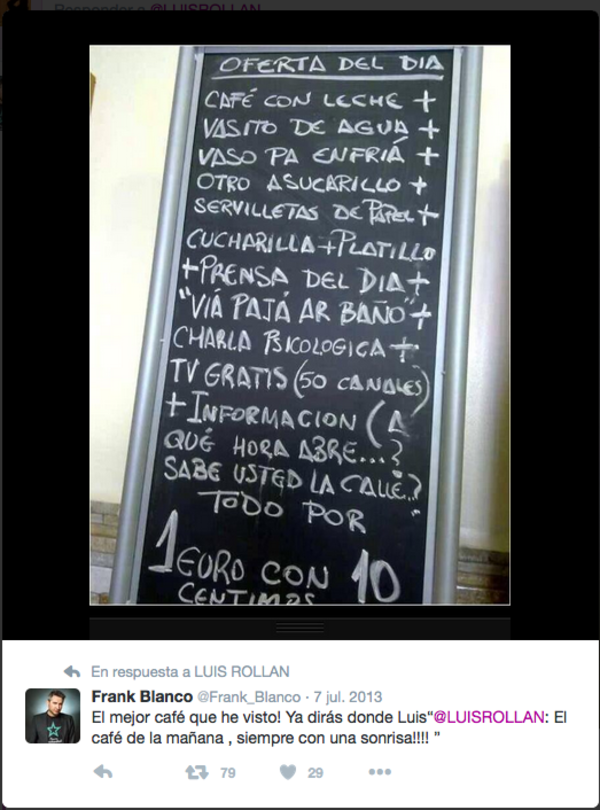 Responder a @LUISROLLAN
OFERTA DEL DIA
CAFÉ CON LECHE +
VASITO DE AGUA +
VASO PA ENFRIÁ +
OTRO ASUCARILLO +
SERVILLETAS DE PAPEL +
CUCHARILLA + PLATILLO
+ PRENSA DEL DIA +
"VIÁ PAJÁ AR BAÑO" +
CHARLA PSICOLOGICA +
TV GRATIS (50 CANALES)
+ INFORMACION (A
QUÉ HORA ABRE...?
SABE USTED LA CALLE..?
TODO POR
1 EURO CON 10
CENTIMOS
En respuesta a LUIS ROLLAN
Frank Blanco @Frank_Blanco · 7 jul. 2013
El mejor café que he visto! Ya dirás donde Luis“@LUISROLLAN: El
café de la mañana , siempre con una sonrisa!!!! ”
79 29